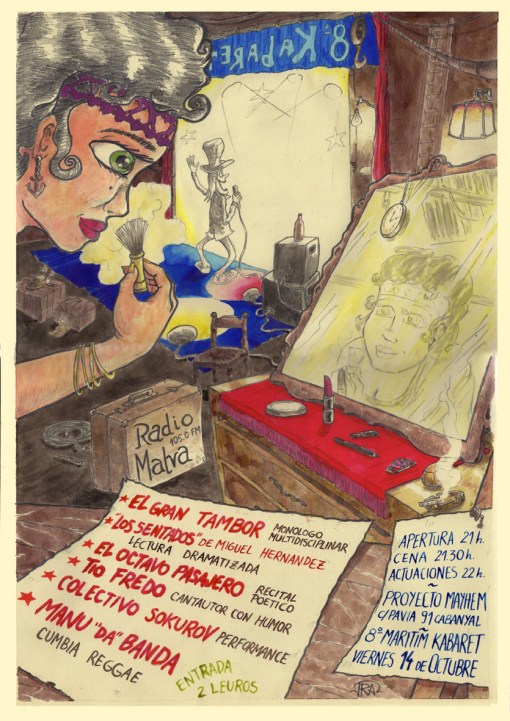 8º KABARET
Radio
105.0 FM
Malva
★ EL GRAN TAMBOR MONOLOGO MULTIDISCIPLINAR
★ "LOS SENTADOS" DE MIGUEL HERNANDEZ
LECTURA DRAMATIZADA
★ EL OCTAVO PASAJERO RECITAL POETICO
★ TIO FREDO CANTAUTOR CON HUMOR
★ COLECTIVO SOKUROV PERFORMANCE
★ MANU "DA" BANDA
CUMBIA REGGAE
ENTRADA
2 LEUROS
APERTURA 21 h.
CENA 21:30 h.
ACTUACIONES 22 h.
~
PROYECTO MAYHEM
C/PAVIA 91 CABANYAL
8º MARITIM̃ KABARET
VIERNES 14 DE OCTUBRE